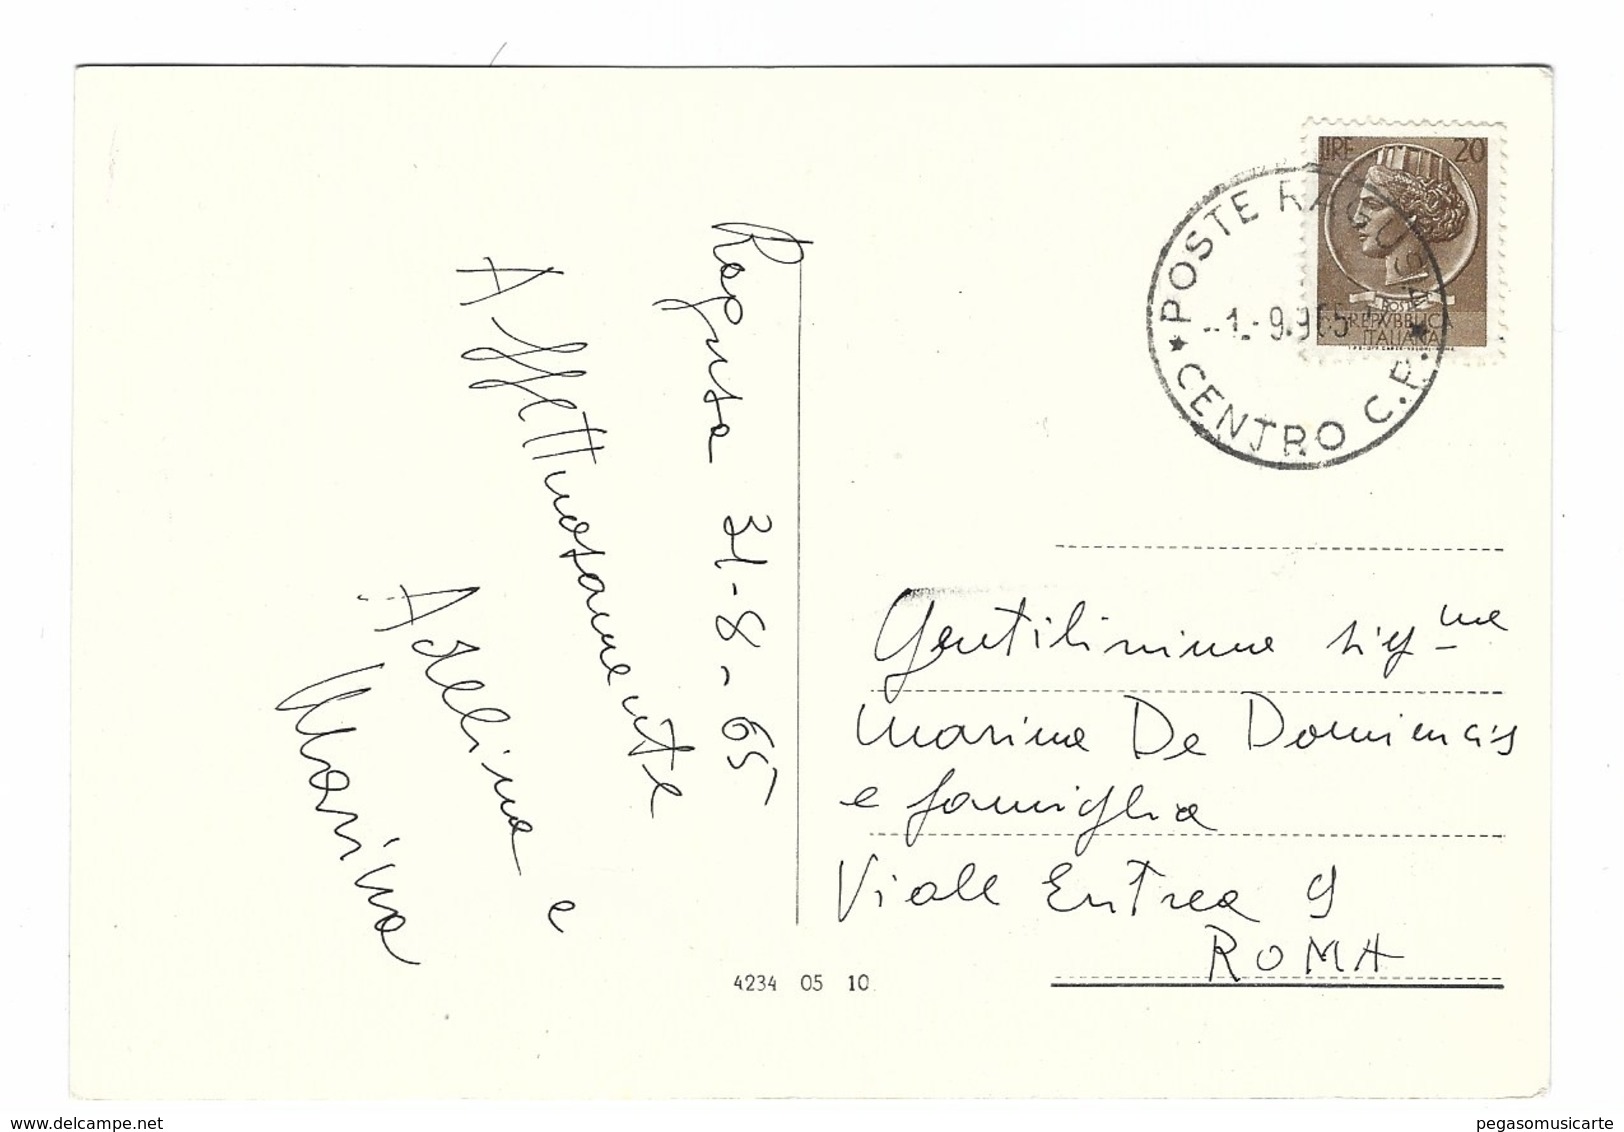 Ragusa 31-8-65
Affettuosamente
Adelina e
Marina
LIRE 20
POSTE
REPVBBLICA
ITALIANA
POSTE RAGUSA
-1.-9.965
★ CENTRO C.P. ★
Gentilissime sig.me
Marina De Dominicis
e famiglia
Viale Eritrea 9
ROMA
4234 05 10
delcampe.net
pegasomusicarte